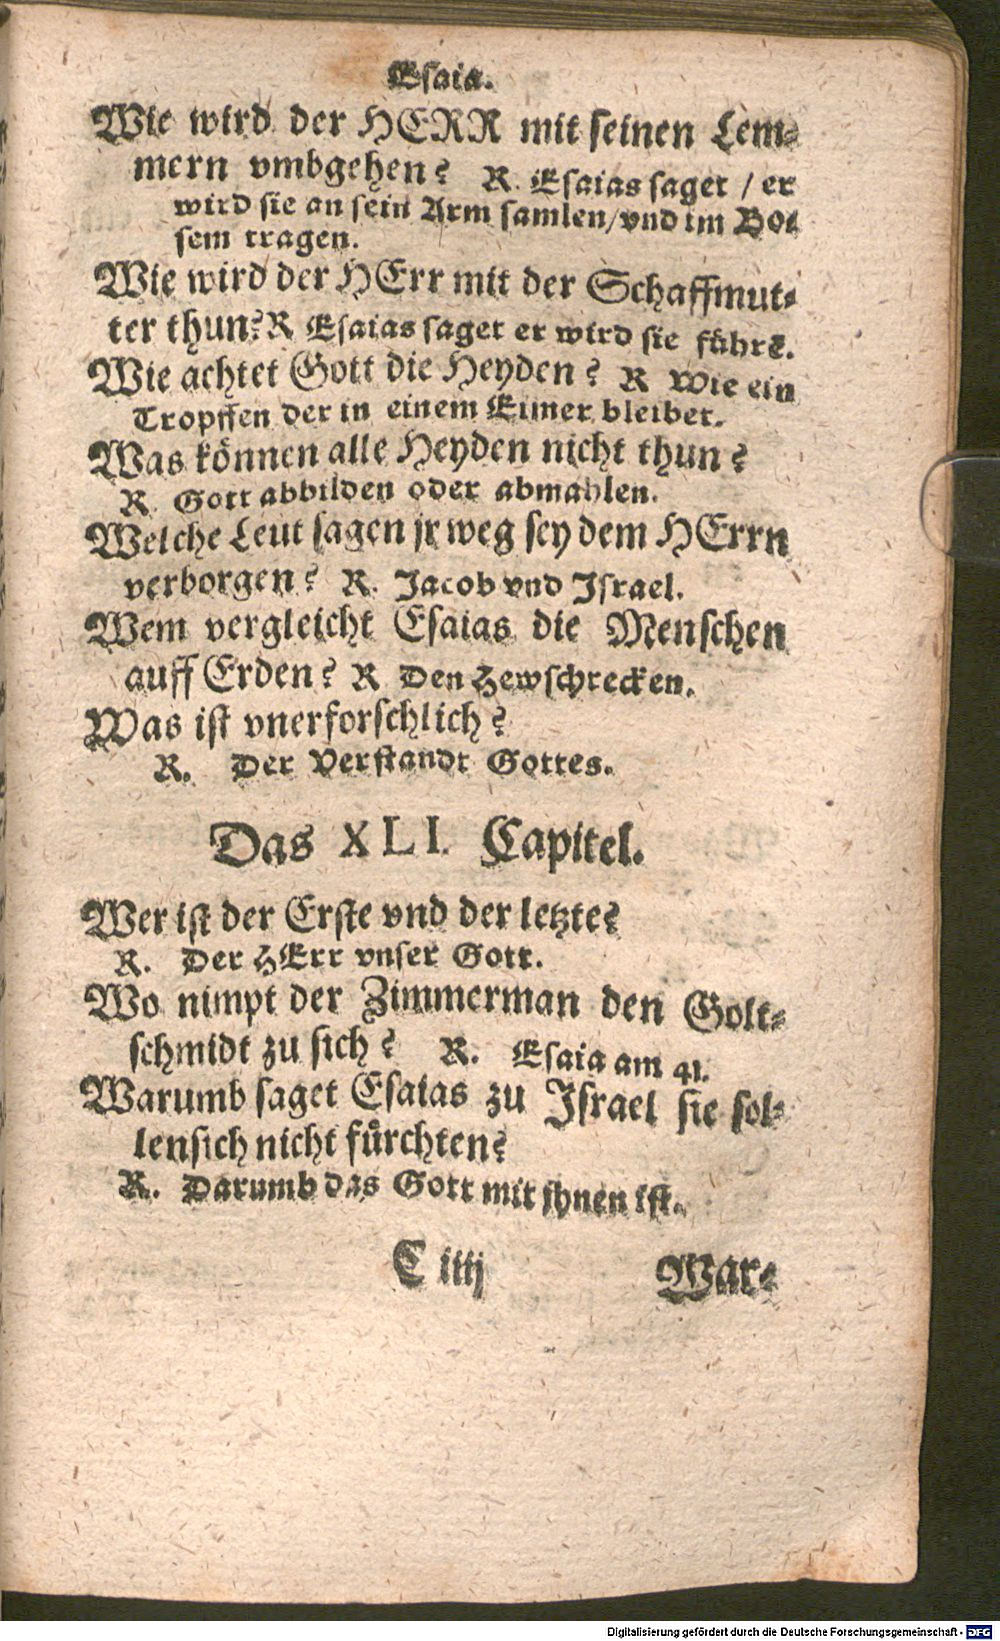 Esaia.
Wie wird der HERR mit seinen Lem-
mern vmbgehen? R. Esaias saget / er
wird sie an sein Arm samlen/vnd im Bo-
sem tragen.
Wie wird der HErr mit der Schaffmut-
ter thun? R Esaias saget er wird sie führē.
Wie achtet Gott die Heyden? R Wie ein
Tropffen der in einem Eimer bleibet.
Was können alle Heyden nicht thun?
R. Gott abbilden oder abmahlen.
Welche Leut sagen jr weg sey dem HErrn
verborgen? R. Jacob vnd Israel.
Wem vergleicht Esaias die Menschen
auff Erden? R Den Hewschrecken.
Was ist vnerforschlich?
R. Der Verstandt Gottes.
Das XLI. Capitel.
Wer ist der Erste vnd der letzte?
R. Der HErr vnser Gott.
Wo nimpt der Zimmerman den Golt-
schmidt zu sich? R. Esaia am 41.
Warumb saget Esaias zu Israel sie sol-
lensich nicht fürchten?
R. Darumb das Gott mit ihnen ist.
C iiij War-
Digitalisierung gefördert durch die Deutsche Forschungsgemeinschaft - DFG